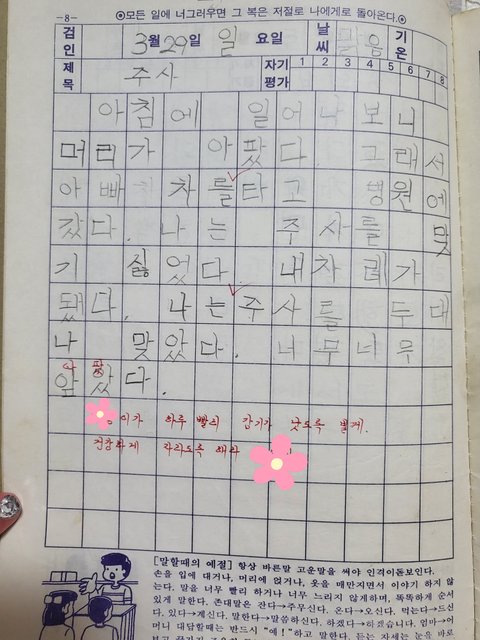 -8- ⊙모든 일에 너그러우면 그 복은 저절로 나에게로 돌아온다.⊙
검인 3월 29일 일요일 날씨 맑음 기온
제목 주사 자기평가 1 2 3 4 5 6 7 8
아침에 일어나 보니
머리가 아팠다. 그래서
아빠 차를타고 병원에
갔다. 나는 주사를 맞
기 싫었다. 내차례가
됐다. 나는주사를 두대
나 맞았다. 너무너무
아 팠
앞팠다.
이가 하루 빨리 감기가 낫도록 빌게.
건강하게 자라도록 해라
[말할때의 예절] 항상 바른말 고운말을 써야 인격이돋보인다.
손을 입에 대거나, 머리에 얹거나, 옷을 매만지면서 이야기 하지 않
는다. 말을 너무 빨리 하거나 너무 느리지 않게하며, 똑똑하게 순서
있게 말한다. 존대말은 잔다→주무신다. 온다→오신다. 먹는다→드신
다. 있다→계신다. 말한다→말씀하신다. 하겠다→하겠습니다. 엄마→어
머니 대답할때는 반드시 "예!"하고 말한다. 듣는 자세는 눈이 바로